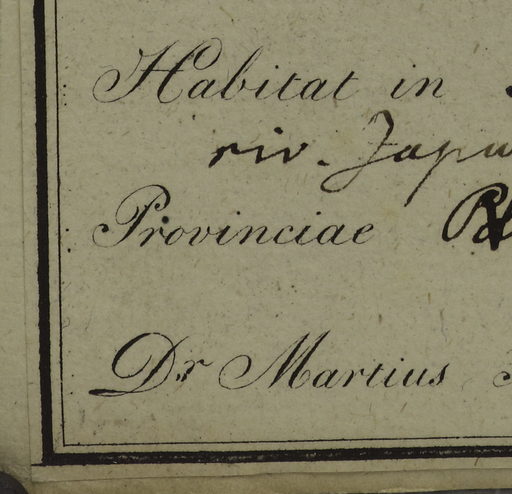 Habitat in
riv. Japu
Provinciae
Dr Martius